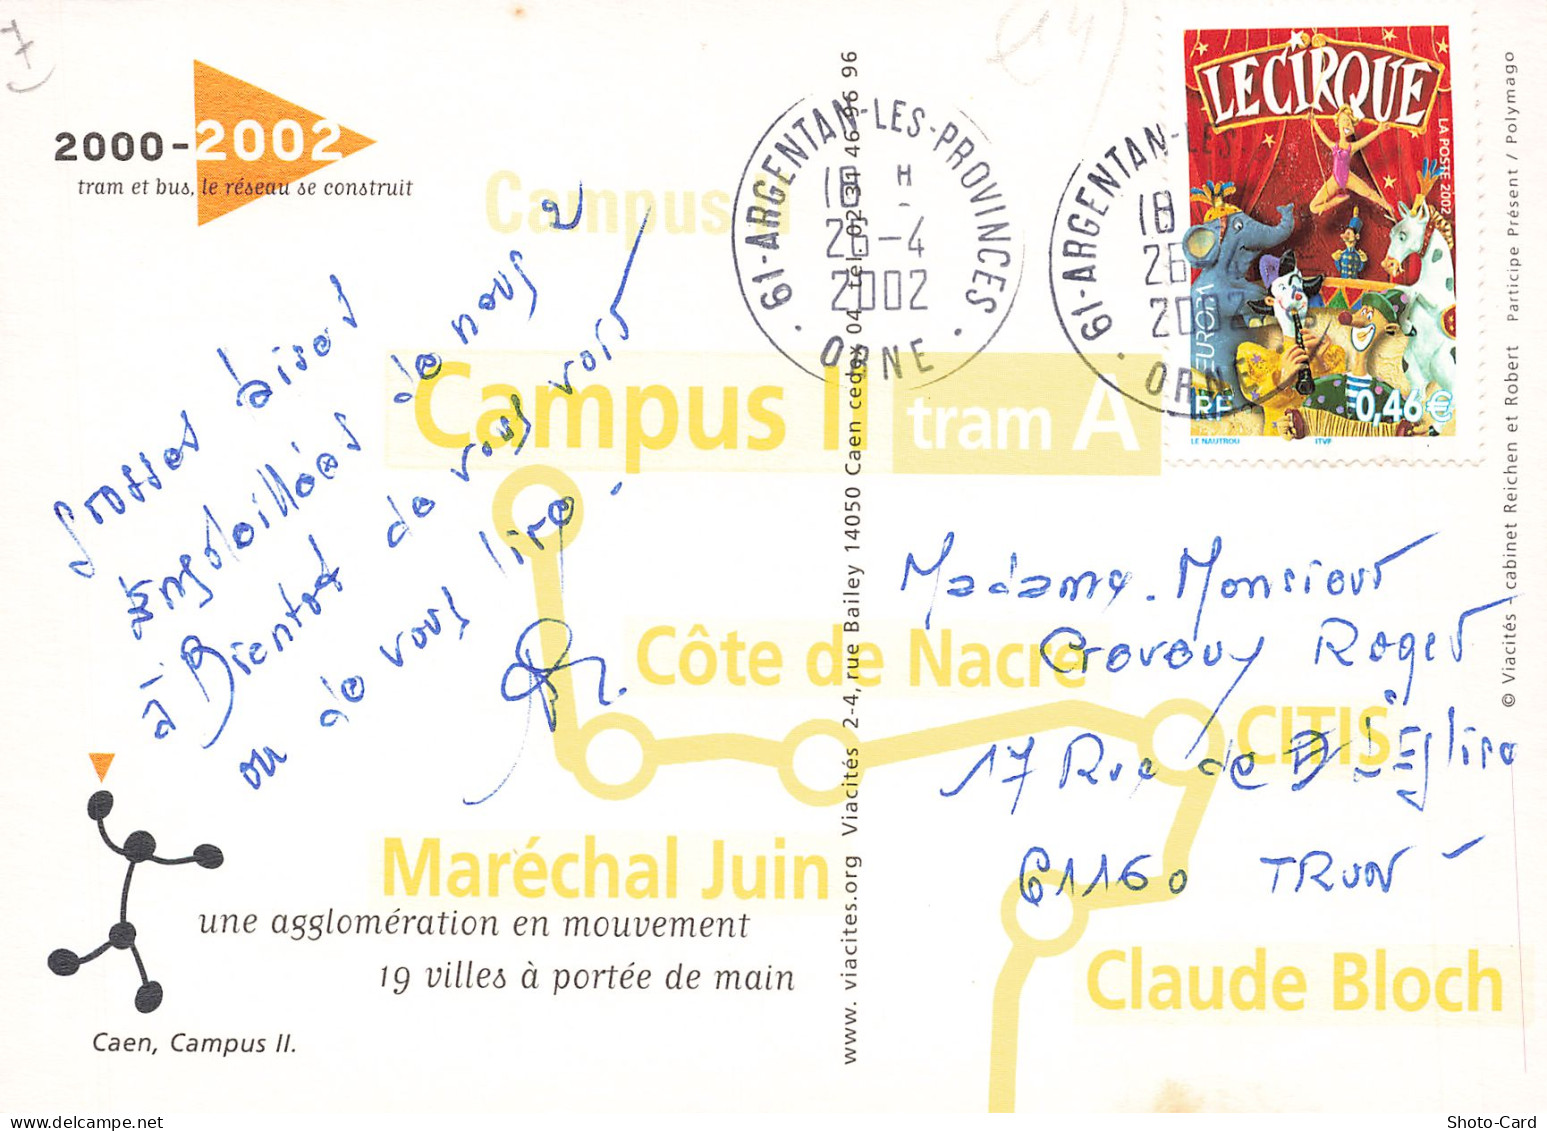 7
2000-2002
tram et bus, le réseau se construit
Grosses bises
ensoleillées de nous 2
à Bientot de vous voir
ou de vous lire.
une agglomération en mouvement
19 villes à portée de main
Caen, Campus II.
Campus II
Campus II tram A
Côte de Nacre
CITIS
Maréchal Juin
Claude Bloch
www.viacites.org Viacités 2-4, rue Bailey 14050 Caen cedex 04 tél. 02 31 46 96 96
61-ARGENTAN-LES-PROVINCES
18 H
26-4
2002
ORNE
61-ARGENTAN-LES
18
26
2002
ORNE
LE CIRQUE
LA POSTE 2002
EUROPA
RF 0,46€
LE NAUTROU ITVF
Madame. Monsieur
Roger
17 Rue de L'Eglise
61160 TRUN
© Viacités - cabinet Reichen et Robert Participe Présent / Polymago
Shoto-Card